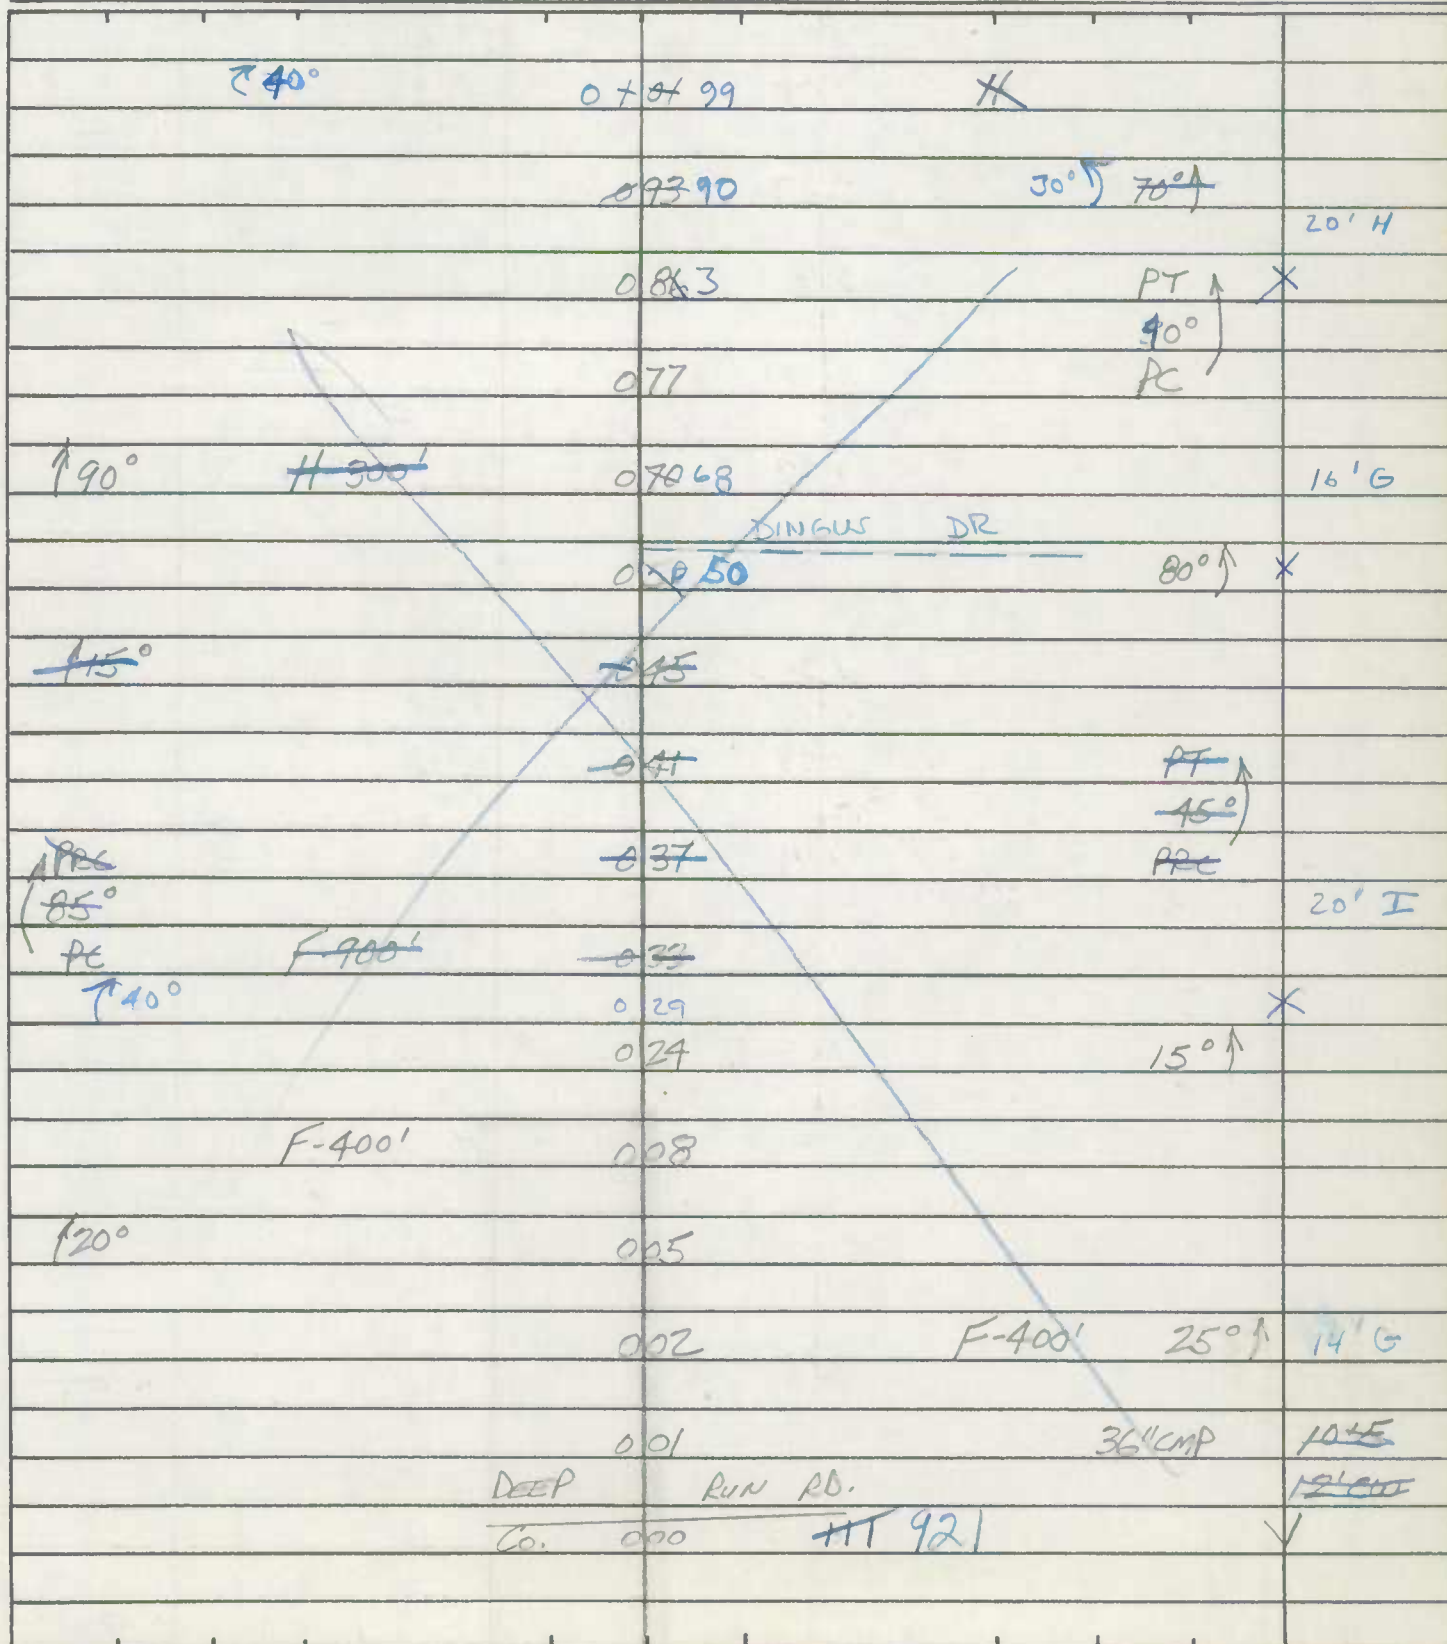 40° 0 + 01 99 H
0 93 90 30° 70°
20' H
0 86 3 PT
90°
0 77 PC
90° H-300' 0 70 68 16' G
DINGUS DR
0 50 80° X
15° 0 45
0 41 PT
45°
PRC 0 37 PRC
85° 20' I
PC F-900' 0 33
40° 0 29 X
0 24 15°
F-400' 0 08
20° 0 05
0 02 F-400' 25° 14' G
0 01 36" CMP
DEEP RUN RD.
Co. 0 00 921